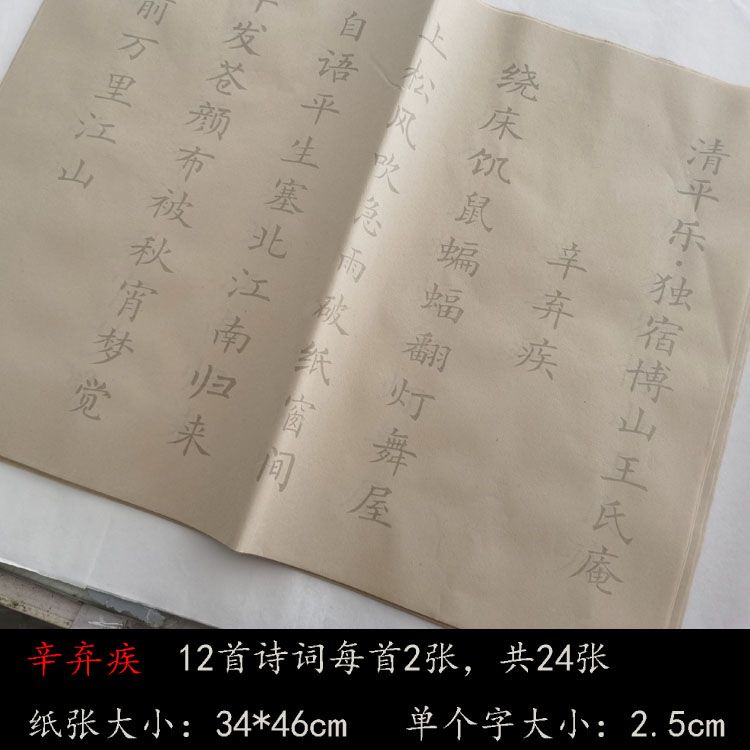 清平乐·独宿博山王氏庵
辛弃疾
绕床饥鼠蝙蝠翻灯舞屋
上松风吹急雨破纸窗间
自语平生塞北江南归来
发苍颜布被秋宵梦觉
前万里江山
辛弃疾 12首诗词每首2张，共24张
纸张大小：34*46cm 单个字大小：2.5cm